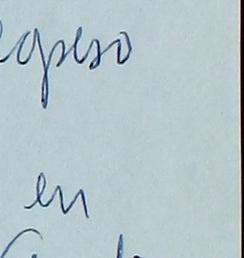 egreso
en